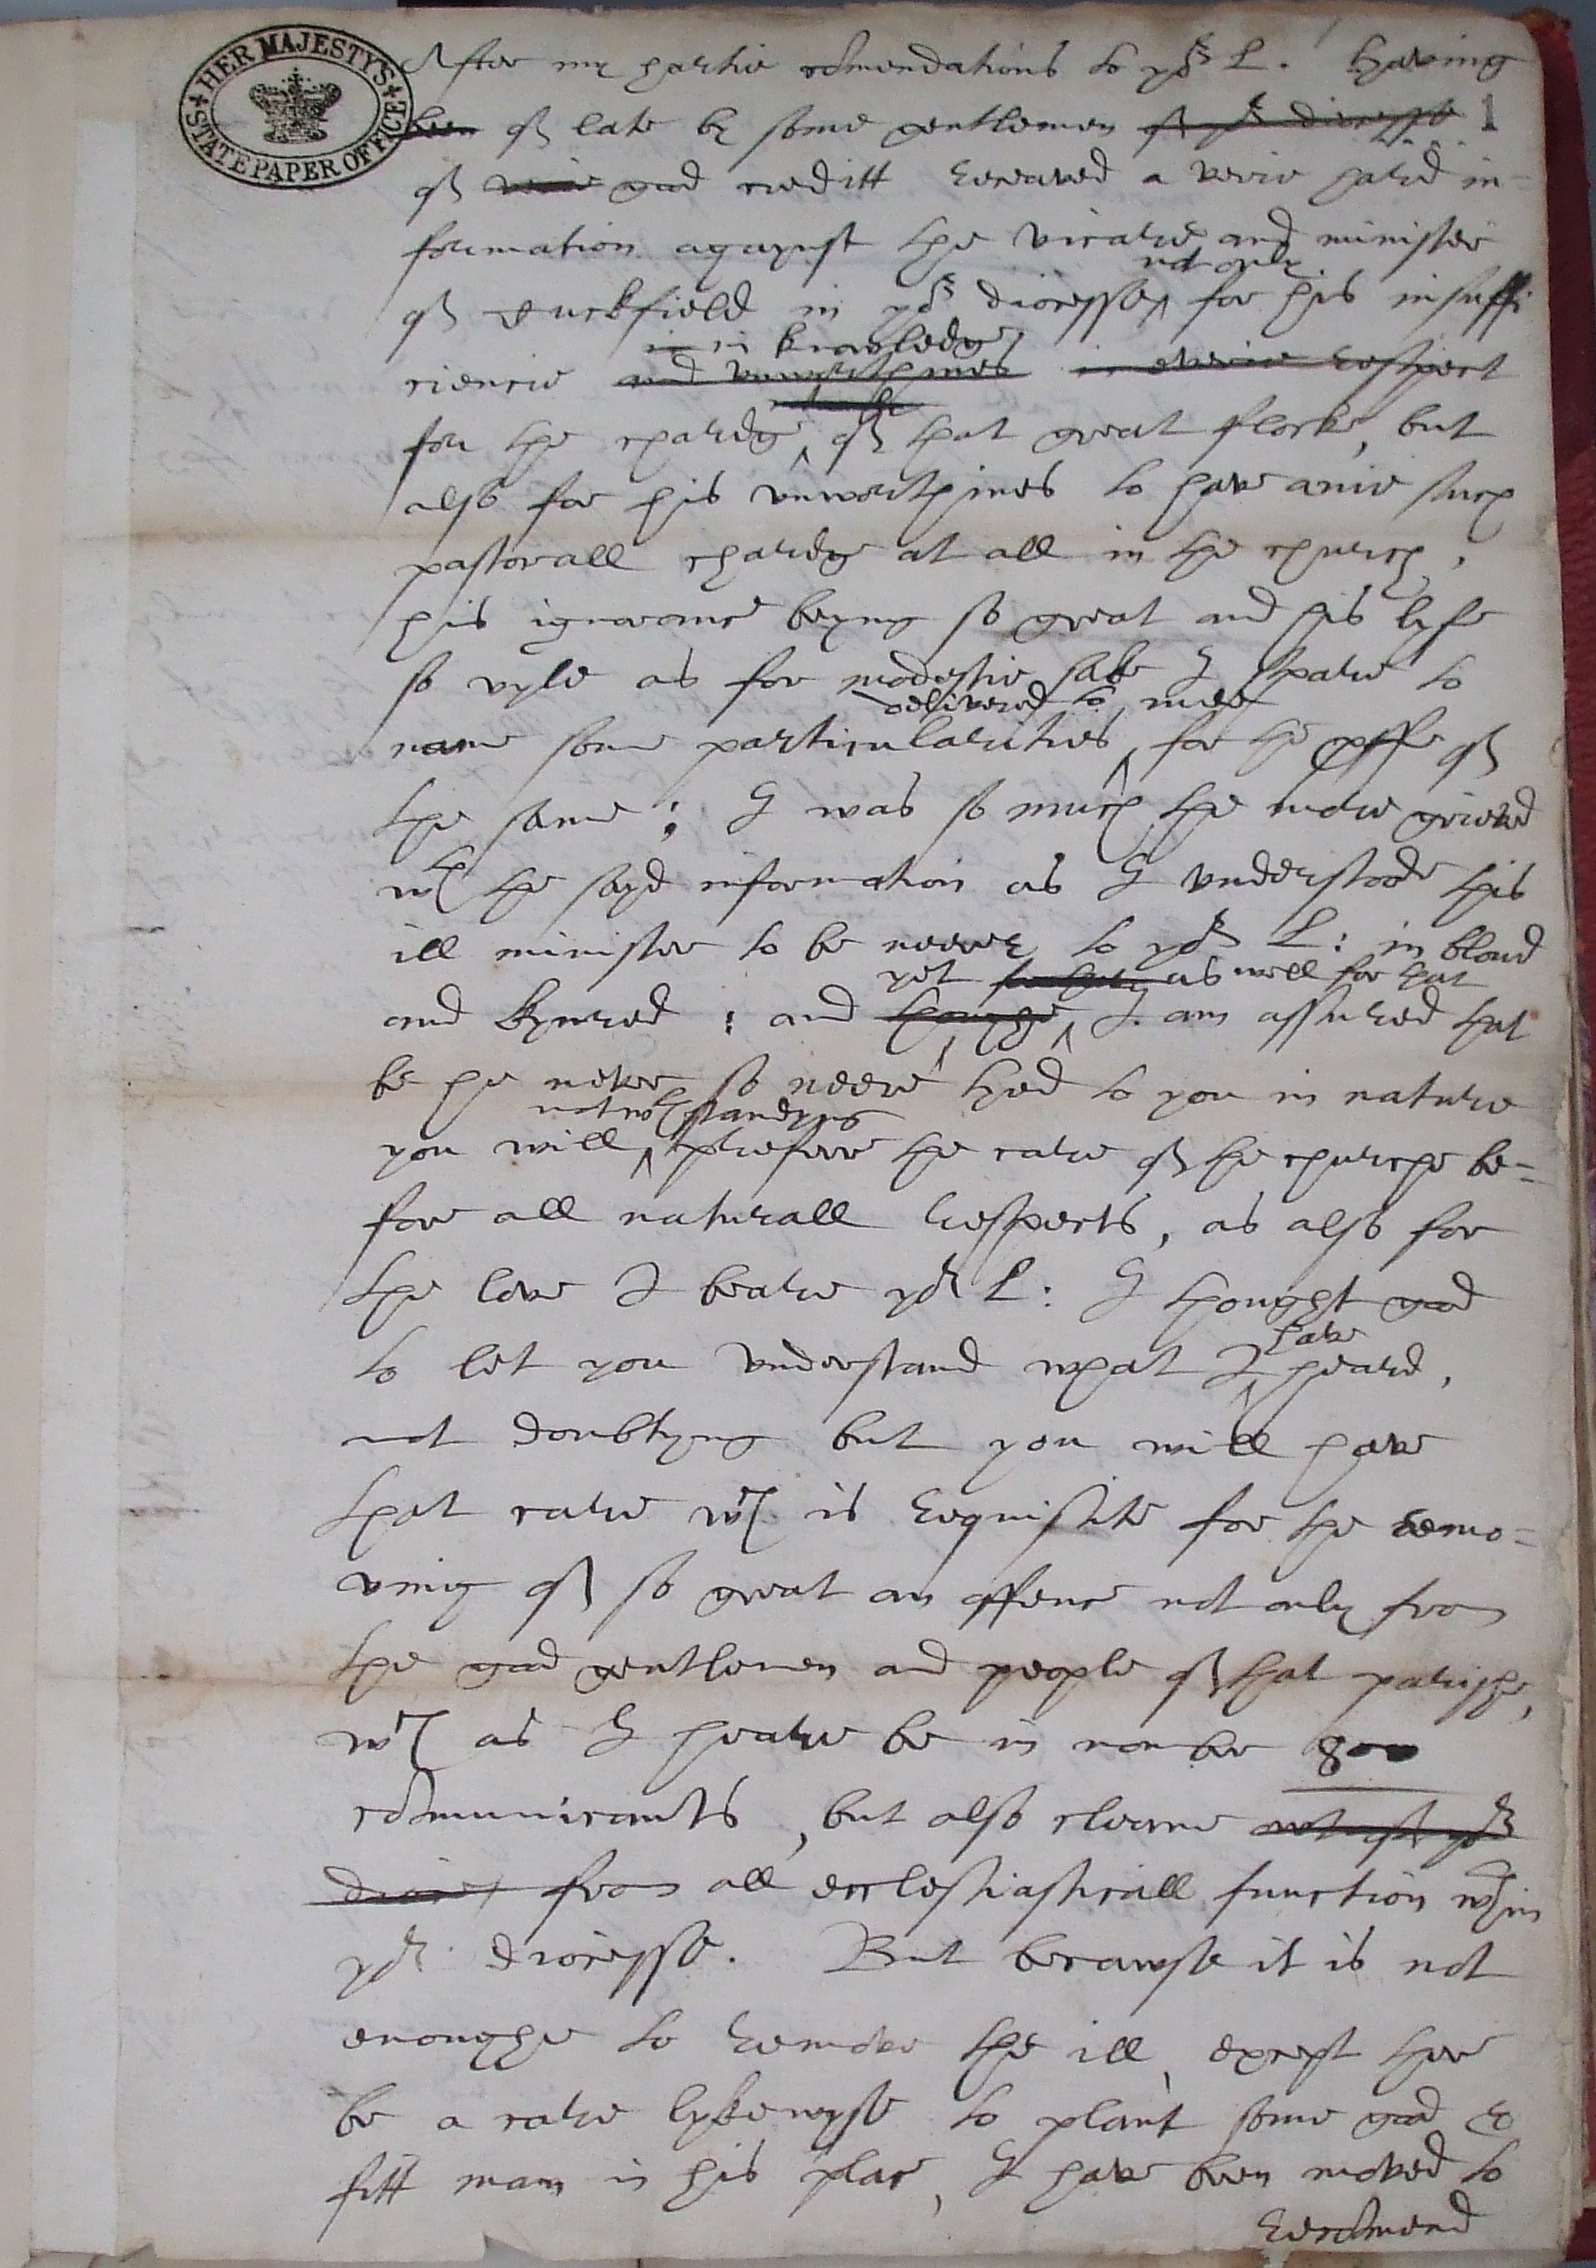 HER MAJESTY'S STATE PAPER OFFICE
After my hartie comendations to yor L. Having
been of late by some gentlemen of yor diocesse 1
of verie good creditt receaved a verie hard in=
formation agaynst the vicare and minister
not only
of Cuckfield in yor diocesse, for his insuffi
in knowledge
ciencie and unworthines in everie respect
for the chardg, of that great flocke, but
also for his unworthines to have anie such
pastorall chardg at all in the church,
his ignorance beyng so great and his lyfe
so vyle as for modestie sake I spare to
delivered to mee
name some particularities, for the proffe of
the same; I was so much the more grieved
wth the sayd information as I understoode this
ill minister to be neere to yor L: in bloud
yet as well for that
and kynred; and though I am assured that
be he never so neere tyed to you in nature
notwthstandyng
you will preferre the care of the churche be=
for all naturall respects, as also for
the love I beare yor L: I thought good
have
to let you understand what I heard,
not doubtyng but you will have
that care wch is requisite for the remo=
ving of so great an offence not only from
the good gentlemen and people of that parishe,
wch as I heare be in nomber 800
comunicants, but also cleane out of yor
dioces from all ecclesiasticall function wthin
yor diocesse. But becawse it is not
enoughe to remove the ill, except ther
be a care lykewyse to plant some good &
fitt man in his place, I have been moved to
recomend